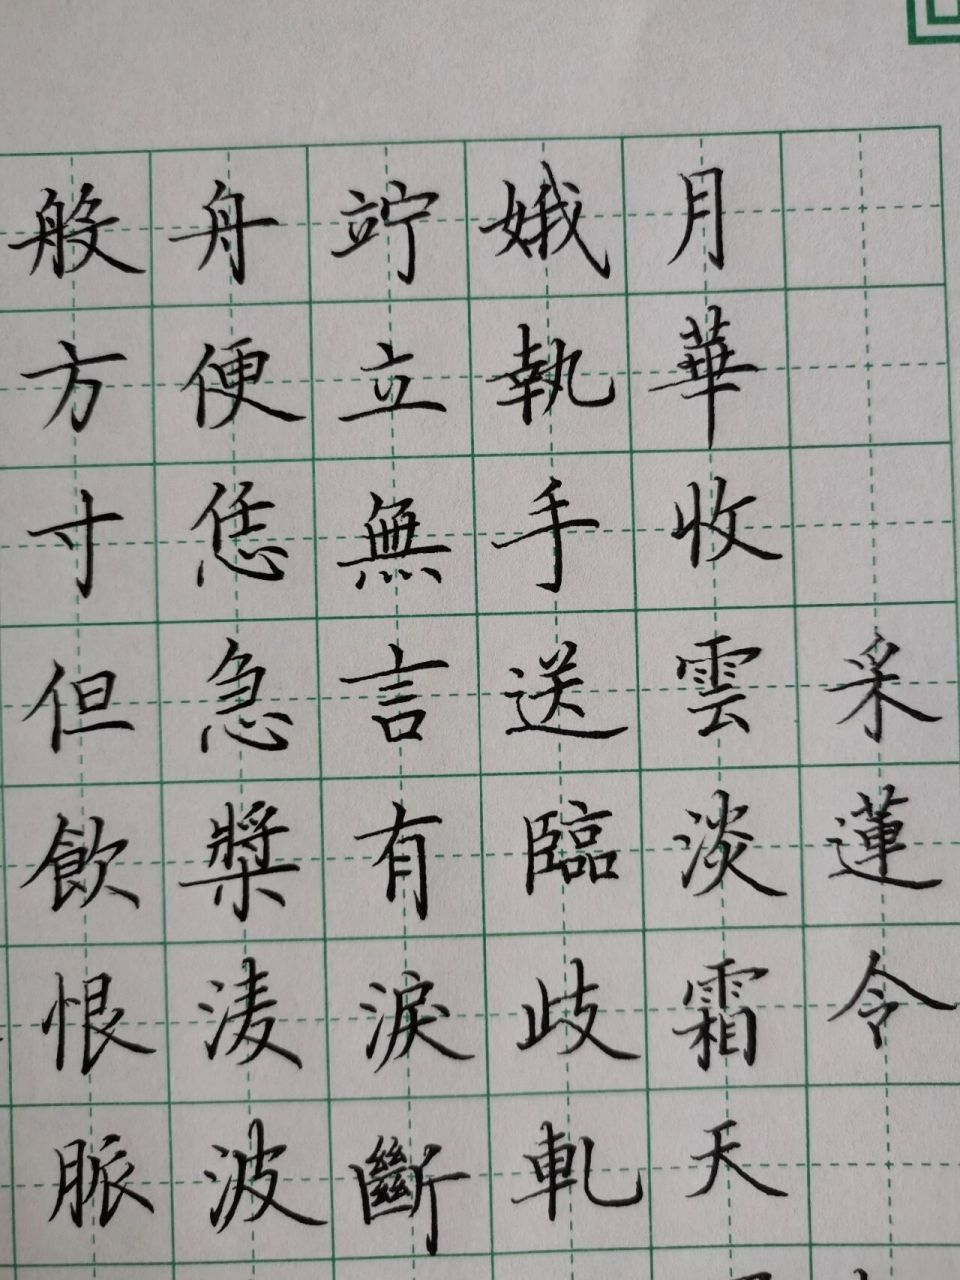 采蓮令
月華收雲淡霜天
娥執手送臨歧軋
竚立無言有淚斷
舟便恁急槳淩波
般方寸但飲恨脈